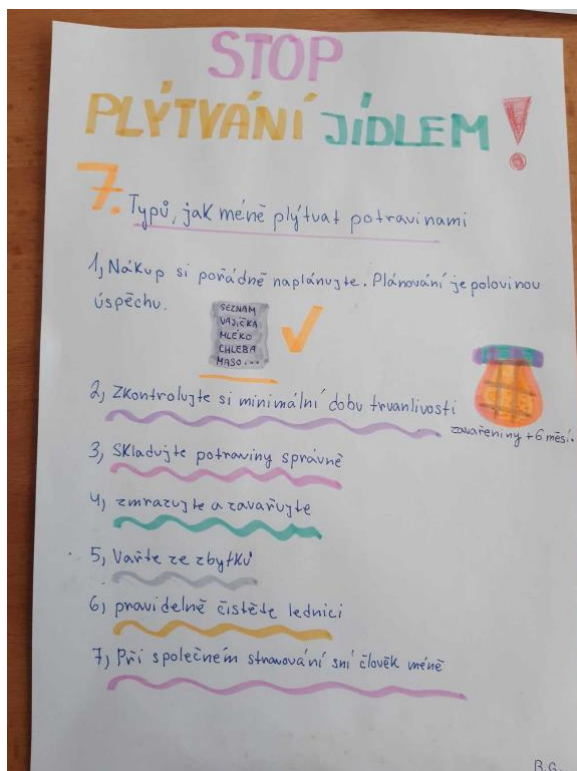 STOP
PLÝTVÁNÍ JÍDLEM!
7. Typů, jak méně plýtvat potravinami
1, Nákup si pořádně naplánujte. Plánování je polovinou
úspěchu.
SEZNAM
VAJÍČKA
MLÉKO
CHLEBA
MASO...
2, Zkontrolujte si minimální dobu trvanlivosti
zavařeniny +6 měsí.
3, Skladujte potraviny správně
4, zmrazujte a zavařujte
5, Vařte ze zbytků
6, pravidelně čistěte lednici
7, Při společném stravování sní člověk méně
B.G.